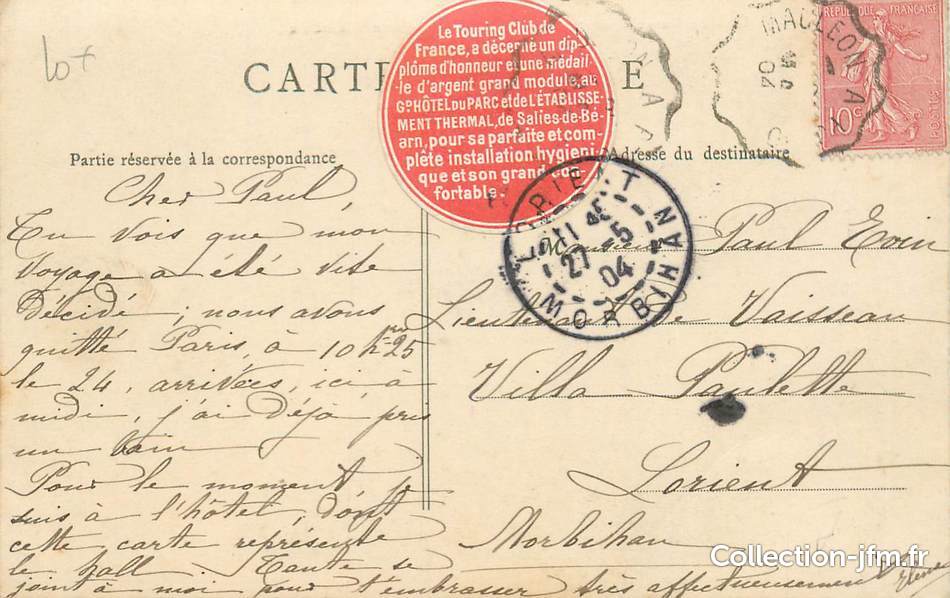 lot
CARTE
REPUBLIQUE FRANÇAISE
10c
POSTES
MAULEON A
04
Le Touring Club de
France, a décerné un dip-
plôme d'honneur et une médail-
le d'argent grand module, au
Gd HÔTEL DU PARC et de l'ÉTABLISSE-
MENT THERMAL, de Salies-de-Bé-
arn, pour sa parfaite et com-
plète installation hygieni
que et son grand con-
fortable.
Partie réservée à la correspondance
Adresse du destinataire
LORIENT
27 -5
04
MORBIHAN
Cher Paul,
Tu vois que mon
voyage a été vite
décidé; nous avons
quitté Paris, à 10 hrs 25
le 24, arrivées, ici à
midi, j'ai déjà pris
un bain
Pour le moment je
suis à l'hôtel, dont
cette carte représente
le hall - Tante se
joint à moi pour t'embrasser très affectueusement
Monsieur Paul
Lieutenant de Vaisseau
Villa Paulette
Lorient
Morbihan
Collection-jfm.fr